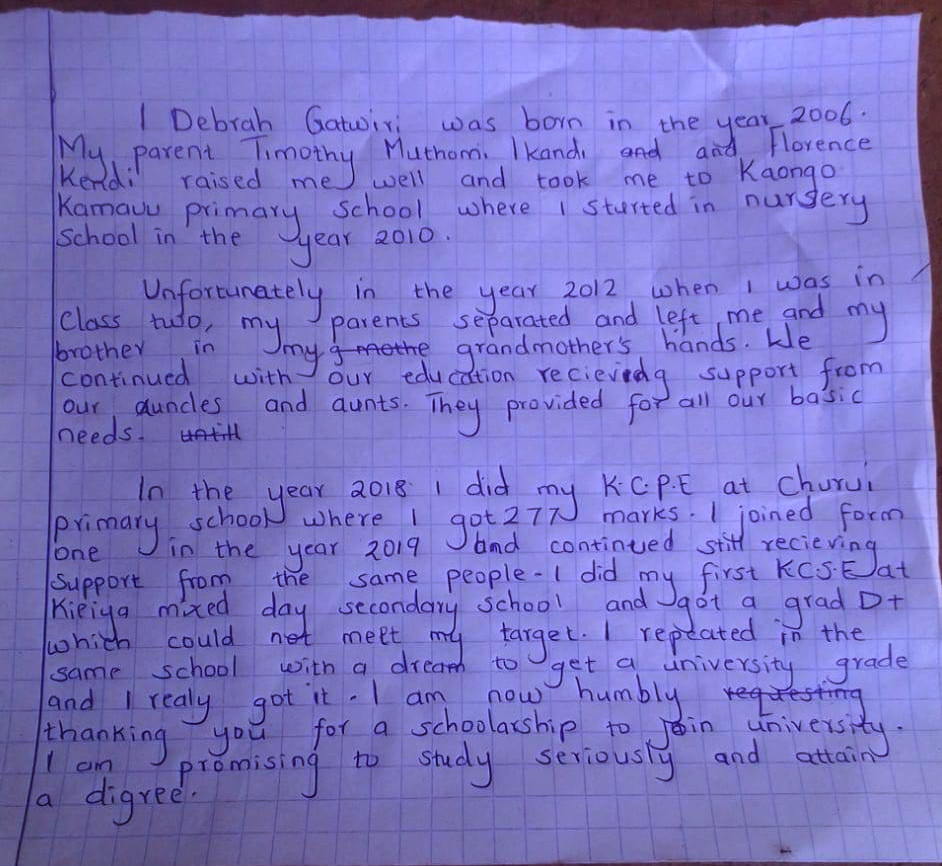 I Debrah Gatwiri was born in the year 2006.
My parent Timothy Muthomi Ikandi and and Florence
Kendi raised me well and took me to Kaongo
Kamauu primary school where I sturted in nursery
School in the year 2010.
Unfortunately in the year 2012 when I was in
Class two, my parents separated and left me and my
brother in my g mothe grandmother's hands. We
continued with our education recieving support from
our auncles and aunts. They provided for all our basic
needs. untill
In the year 2018 I did my K.C.P.E at Churui
primary school where I got 277 marks. I joined form
one in the year 2019 and continued still recieving
Support from the same people. I did my first KCSE at
Kieiya mixed day secondary school and got a grad D+
which could not meet my target. I repeated in the
same school with a dream to get a university grade
and I realy got it. I am now humbly requesting
thanking you for a schoolarship to join university.
I am promising to study seriously and attain
a digree.